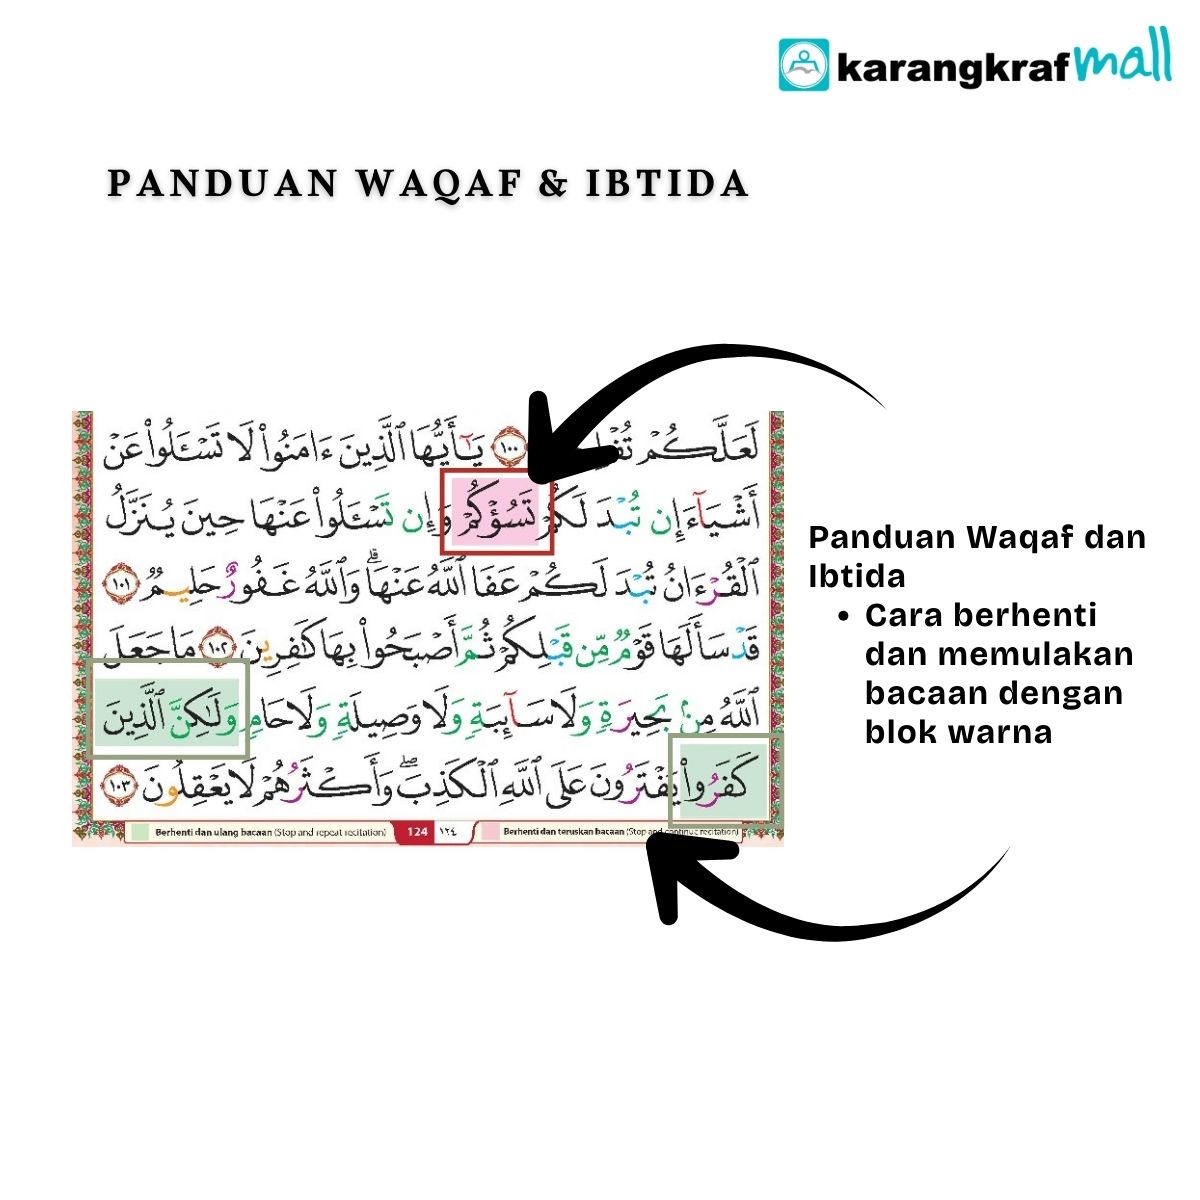 karangkraf mall
PANDUAN WAQAF & IBTIDA
لَعَلَّكُمْ ١٠٠ يَٰٓأَيُّهَا ٱلَّذِينَ ءَامَنُوا۟ لَا تَسْـَٔلُوا۟ عَنْ
أَشْيَآءَ إِن تُبْدَ لَكُمْ تَسُؤْكُمْ وَإِن تَسْـَٔلُوا۟ عَنْهَا حِينَ يُنَزَّلُ
ٱلْقُرْءَانُ تُبْدَ لَكُمْ عَفَا ٱللَّهُ عَنْهَا ۗ وَٱللَّهُ غَفُورٌ حَلِيمٌ ١٠١
قَدْ سَأَلَهَا قَوْمٌ مِّن قَبْلِكُمْ ثُمَّ أَصْبَحُوا۟ بِهَا كَٰفِرِينَ ١٠٢ مَا جَعَلَ
ٱللَّهُ مِنۢ بَحِيرَةٍ وَلَا سَآئِبَةٍ وَلَا وَصِيلَةٍ وَلَا حَامٍ وَلَٰكِنَّ ٱلَّذِينَ
كَفَرُوا۟ يَفْتَرُونَ عَلَى ٱللَّهِ ٱلْكَذِبَ ۖ وَأَكْثَرُهُمْ لَا يَعْقِلُونَ ١٠٣
Berhenti dan ulang bacaan (Stop and repeat recitation) 124 ١٢٤ Berhenti dan teruskan bacaan (Stop and continue recitation)
Panduan Waqaf dan
Ibtida
• Cara berhenti
dan memulakan
bacaan dengan
blok warna